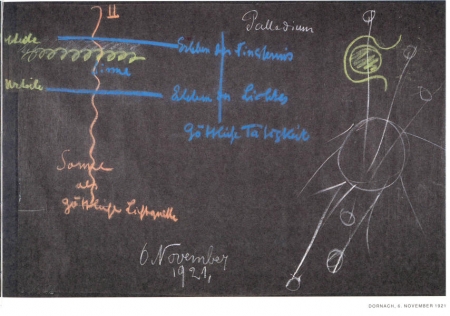 II
Palladium
Erleben der Finsternis
Erleben des Lichtes
Göttliche Tätigkeit
Sonne
als
göttliche Lichtquelle
6 November
1921,
DORNACH, 6. NOVEMBER 1921